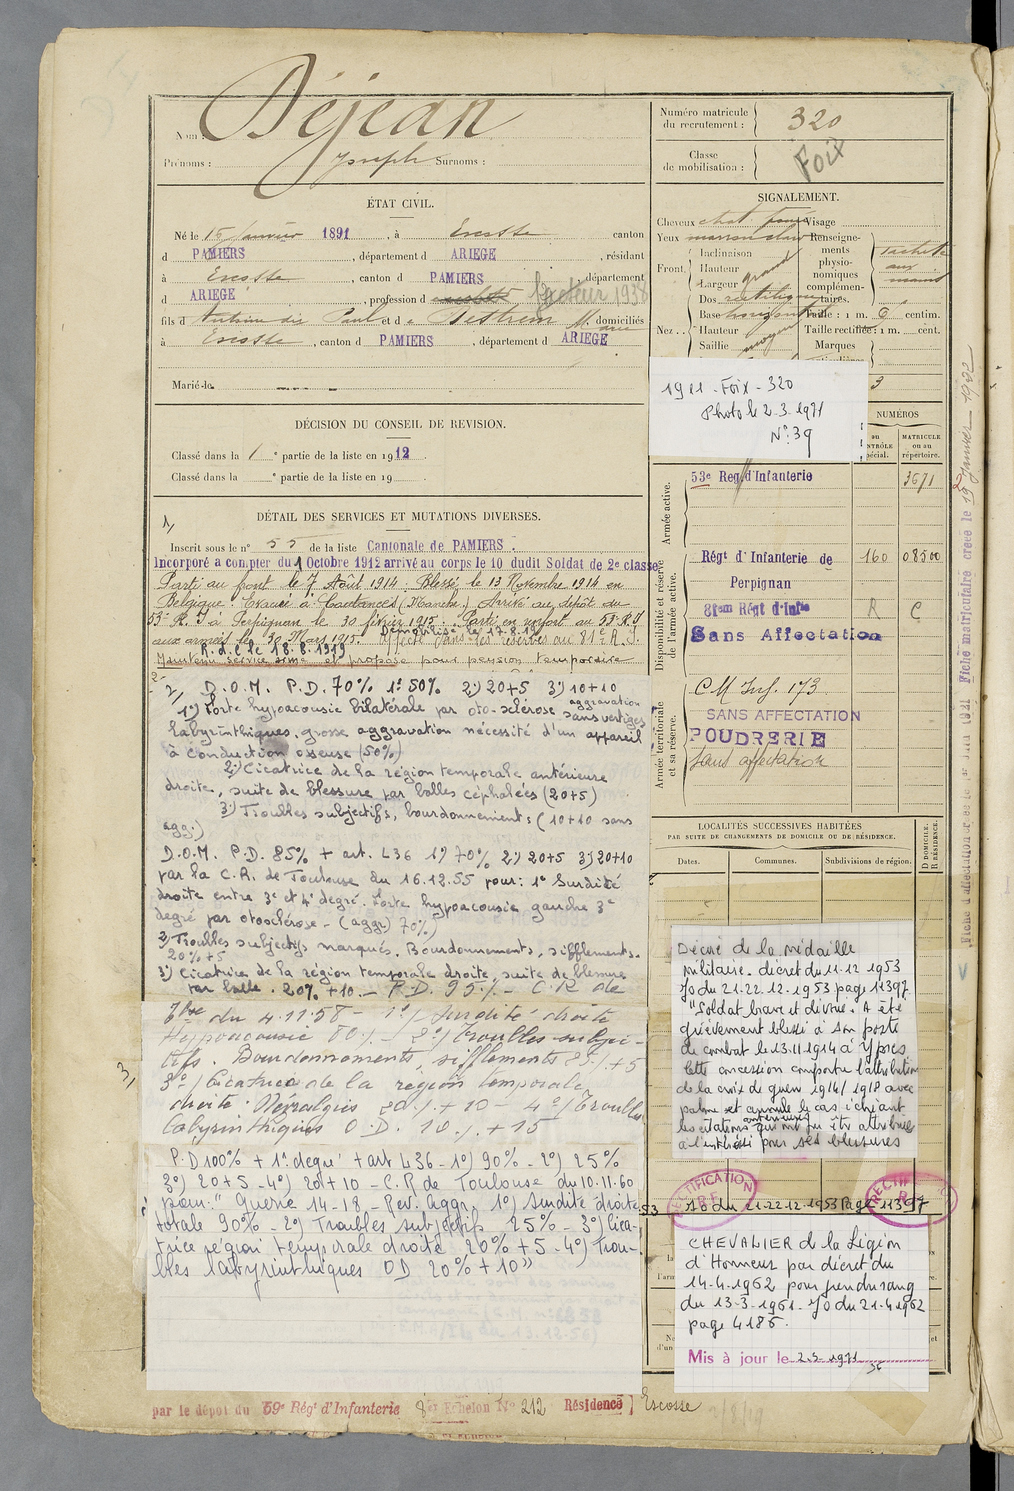 Nom : Déjean
Prénoms : Joseph Surnoms :
Numéro matricule du recrutement : 320
Classe de mobilisation : Foix
ÉTAT CIVIL.
Né le 15 Janvier 1891, à Escosse canton
d PAMIERS, département d ARIEGE, résidant
à Escosse, canton d PAMIERS, département
d ARIEGE, profession d facteur 1938
fils d' Antoine dit Paul et d e Destrem M. domiciliés
à Escosse, canton d PAMIERS, département d ARIEGE
Marié le
SIGNALEMENT.
Cheveux chat. Visage
Yeux marron clair Renseigne-
Inclinaison ments
Front. Hauteur grand physio-
nomiques
Largeur complémen-
Dos rectiligne taires.
Base horizontal Taille : 1 m. 6 centim.
Nez . . Hauteur moyen Taille rectifiée : 1 m. cent.
Saillie Marques
1911 - Foix - 320
Photo le 2.3.1971
N°: 39
3
DÉCISION DU CONSEIL DE REVISION.
Classé dans la 1e partie de la liste en 1912.
Classé dans la e partie de la liste en 19 .
DÉTAIL DES SERVICES ET MUTATIONS DIVERSES.
1,
Inscrit sous le n° 55 de la liste Cantonale de PAMIERS.
Incorporé a compter du 1 Octobre 1912 arrivé au corps le 10 dudit Soldat de 2e classe
Parti au front le 7 Août 1914. Blessé le 13 Novembre 1914 en
Belgique. Evacué à Coutances (Manche) Arrivé au dépôt du
53e R. I à Perpignan le 30 février 1915. Parti en renfort au 53e R.I
aux armées le 30 Mars 1915. Démobilisé le 17.8.19 affecté dans les réserves au 81e R. I.
R.d.C le 18.8.1919
Maintenu service armé et proposé pour pension temporaire
2, D.O.M. P.D. 70% 1º 50% 2º) 20+5 3º) 10+10
1º) Forte hypoacousie bilatérale par oto-sclérose aggravation sans vertiges
labyrinthiques, grosse aggravation nécessité d'un appareil
à conduction osseuse (50%)
2º) Cicatrice de la région temporale antérieure
droite, suite de blessure par balles céphalées (20+5)
3º) Troubles subjectifs, bourdonnements (10+10 sans
agg.)
D.O.M. P.D. 85% + art. L36 1º) 70% 2º) 20+5 3º) 20+10
par la C.R. de Toulouse du 16.12.55 pour: 1º Surdité
droite entre 3e et 4e degré. Forte hypoacousie gauche 3e
degré par otosclérose - (aggr.) 70%)
2) Troubles subjectifs marqués. Bourdonnements, sifflements.
20% + 5
3º) Cicatrice de la région temporale droite, suite de blessure
par balle. 20% + 10. - P.D. 95% - C.R de
3, Tlse du 4.11.58 - 1º/ Surdité droite
Hypoacousie 80% - 2º/ Troubles subjec-
tifs. Bourdonnements, sifflements 25% + 5
3º/ Cicatrice de la région temporale
droite. Névralgies 20% + 10 - 4º/ Troubles
labyrinthiques O.D. 10% + 15
P.D 100% + 1º degré + art L36 - 1º) 90% - 2º) 25%
3º) 20+5 - 4º) 20+10 - C.R de Toulouse du 10.11.60
pour: " Guerre 14-18 - Rev. Aggr. 1º) Surdité droite
totale 90% - 2º) Troubles subjectifs 25% - 3º) Cica-
trice région temporale droite 20% + 5 - 4º) Trou-
bles labyrinthiques OD 20% + 10"
NUMÉROS
au CONTRÔLE spécial.
MATRICULE ou au répertoire.
Armée active.
53e Reg d'Infanterie 3671
Disponibilité et réserve de l'armée active.
Régt d'Infanterie de Perpignan 160 08500
81em Régt d'Infie R C
Sans Affectation
Armée territoriale et sa réserve.
CM Inf. 173
SANS AFFECTATION
POUDRERIE
Sans affectation
LOCALITÉS SUCCESSIVES HABITÉES
PAR SUITE DE CHANGEMENTS DE DOMICILE OU DE RÉSIDENCE.
Dates. Communes. Subdivisions de région. D DOMICILE. R RÉSIDENCE.
Décoré de la médaille
militaire. décret du 11.12 1953
JO du 21.22.12.1953 page 11397.
"Soldat brave et dévoué. A été
grièvement blessé à son poste
de combat le 13.11.1914 à Ypres
Cette concession comporte l'attribution
de la croix de guerre 1914/1918 avec
palme et annule le cas échéant
les citations antérieures qui ont pu être attribuées
à l'intéressé pour ses blessures
RECTIFICATION
RECTIFICATION
53 JO du 21-22.12.1953 Page 11397
CHEVALIER de la Légion
d'Honneur par décret du
14-4-1962 pour prendre rang
du 13-3-1961. JO du 21.4.1962
page 4186.
Mis à jour le 2.3.1971
par le dépôt du 59e Régt d'Infanterie 8er Echelon N° 212 Résidence Escosse 2/8/19